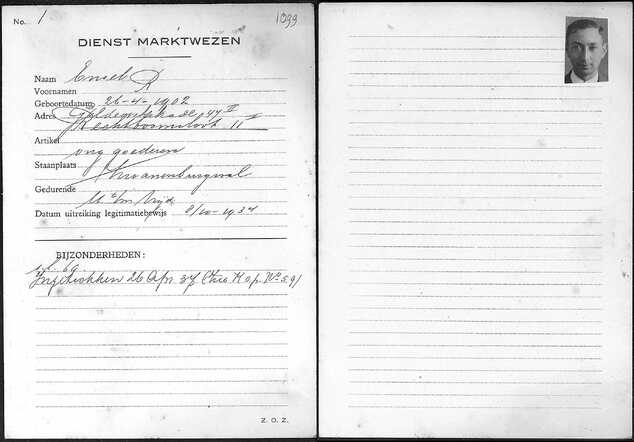 No. 1 1099
DIENST MARKTWEZEN
Naam Ensel R
Voornamen
Geboortedatum 26-4-1902
Adres Geldersekade 44 II
Rechtboomsloot 11 I
Artikel
ong goederen
Staanplaats
Zwanenburgwal
Gedurende
M t/m Vrijd
Datum uitreiking legitimatiebewijs 8/10-1934
BIJZONDERHEDEN:
Ingetrokken 26 Apr 37 (zie K op No 59)
Z. O. Z.